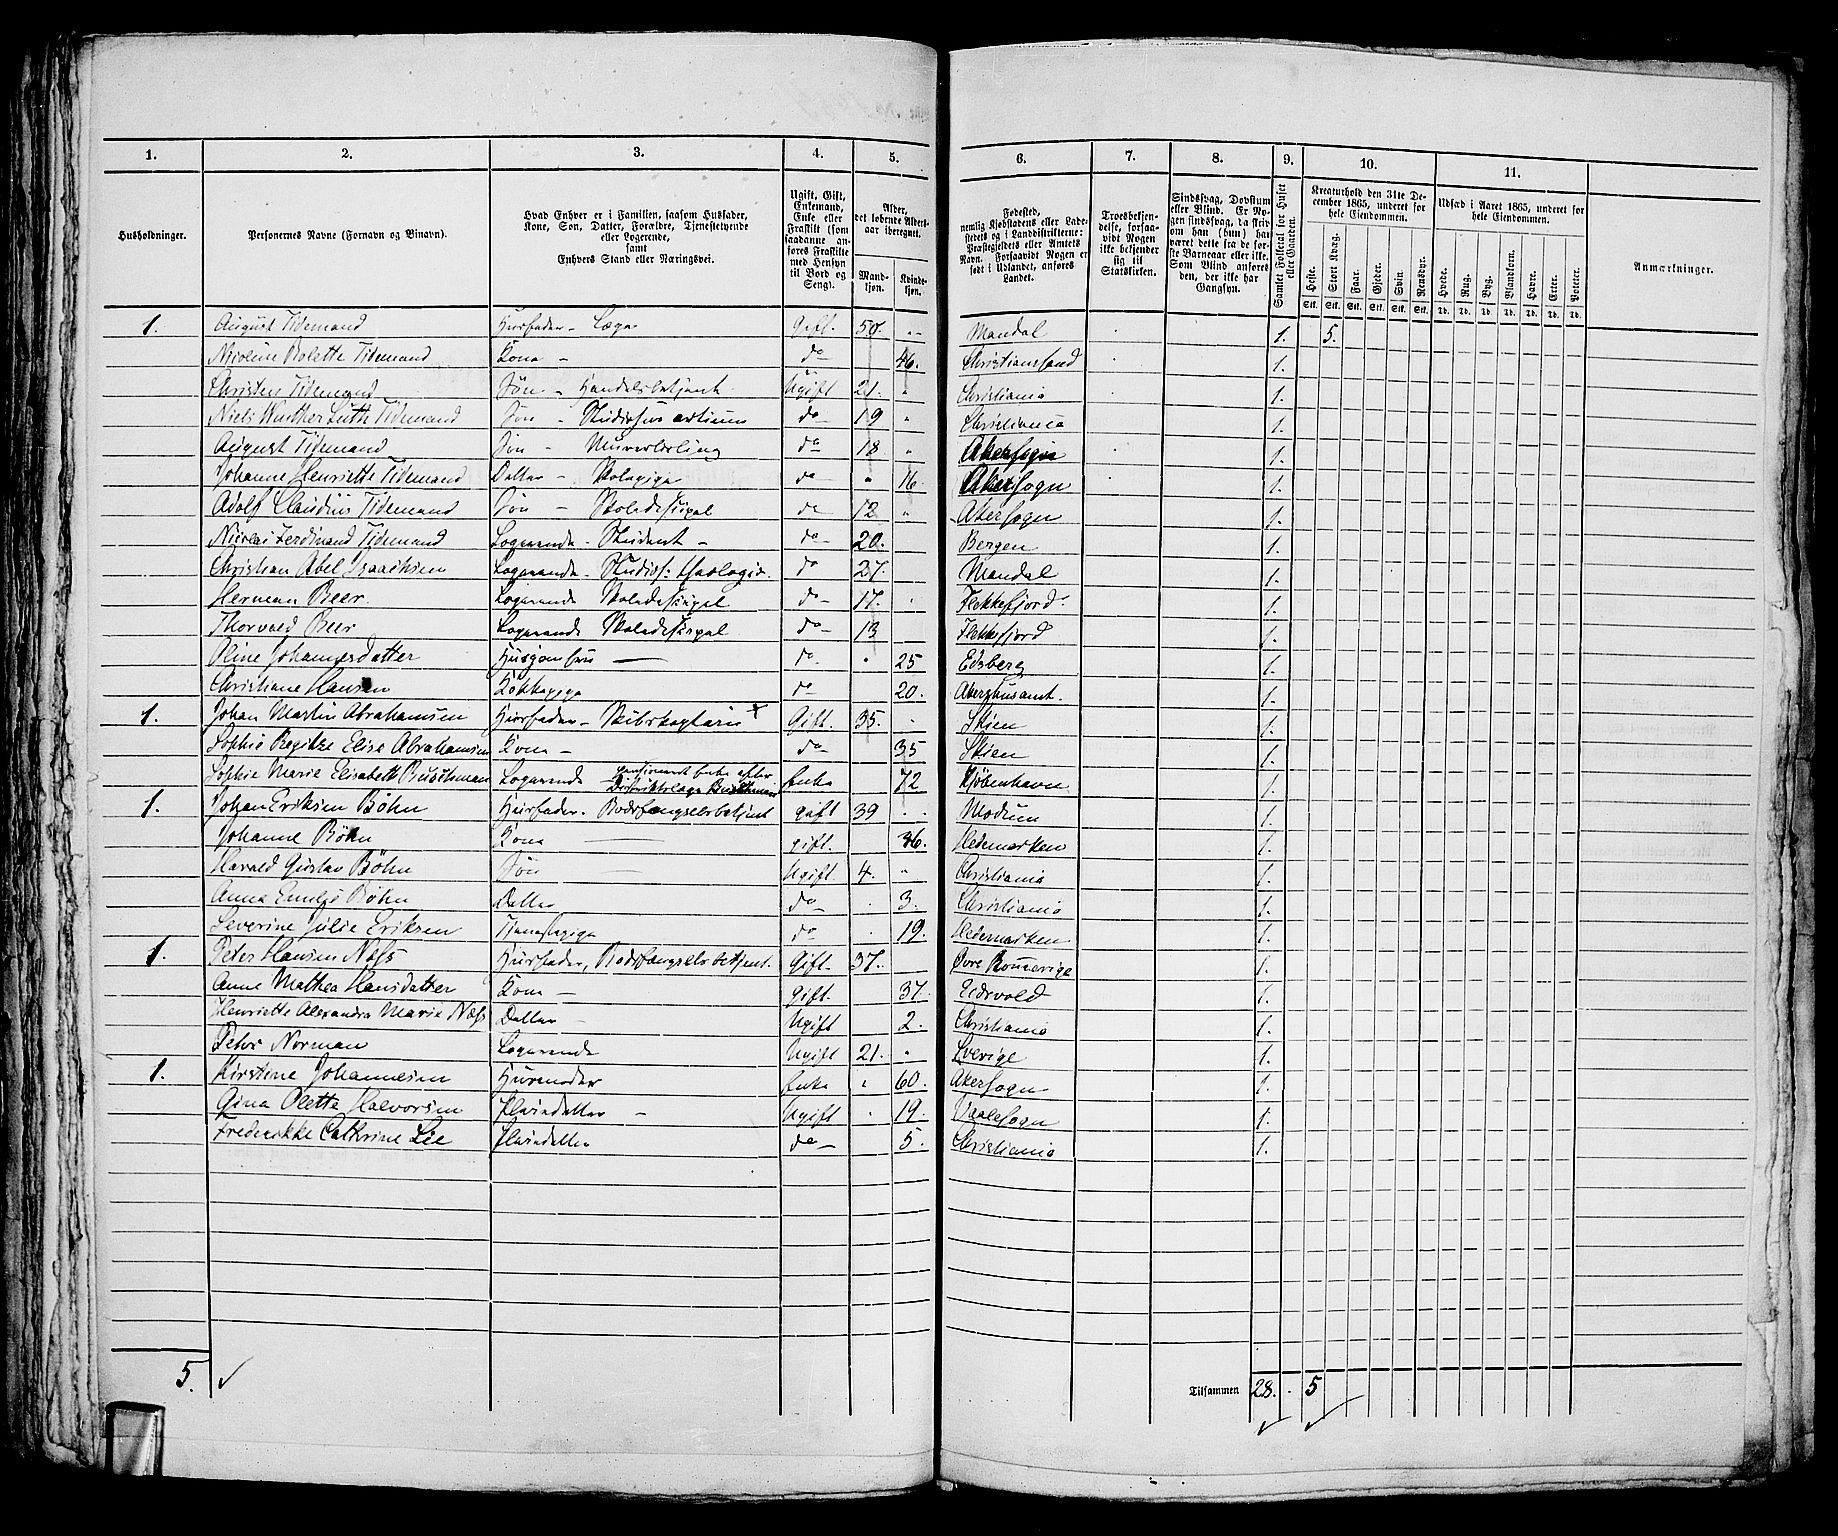 1. 2. 3. 4. 5. 6. 7. 8. 9. 10. 11.
Husholdninger.
Personernes Navne (Fornavn og Binavn).
Hvad Enhver er i Familien, saasom Husfader, Kone, Søn, Datter, Forældre, Tjenestetyende eller Logerende, samt Enhvers Stand eller Næringsvei.
Ugift, Gift, Enkemand, Enke eller Fraskilt (som saadanne anføres Fraskilte med Hensyn til Bord og Seng).
Alder, det løbende Aldersaar iberegnet.
Mandkjøn. Kvindekjøn.
Fødested, nemlig Kjøbstadens eller Ladestedets og i Landdistrikterne: Præstegjeldets eller Amtets Navn. Forsaavidt Nogen er født i Udlandet, anføres Landet.
Troesbekjendelse, forsaavidt Nogen ikke bekjender sig til Statskirken.
Sindssvag, Døvstum eller Blind. Er Nogen sindssvag, da skrives om han (hun) har været dette fra de første Barneaar eller ikke. Som Blind anføres den, der ikke har Gangsyn.
Samlet Folketal for Huset eller Gaarden.
Kreaturhold den 31te December 1865, underet for hele Eiendommen.
Heste. Stort Kvæg. Faar. Gjeder. Svin. Rensdyr.
Stk. Stk. Stk. Stk. Stk. Stk.
Udsæd i Aaret 1865, underet for hele Eiendommen.
Hvede. Rug. Byg. Blandkorn. Havre. Erter. Poteter.
Td. Td. Td. Td. Td. Td. Td.
Anmærkninger.
1. August Tidemand Husfader - Læge Gift 50. „ Mandal 1. 5.
Nicoline Bolette Tidemand Kone - do 46. Christianssand 1.
Christen Tidemand Søn - Handelsbetjent Ugift 21. „ Christiania 1.
Niels Winther Luth Tidemand Søn - Studiosus artium do 19 „ Christiania 1.
August Tidemand Søn - Murerlærling do 18. „ Akersogn 1.
Johanne Henriette Tidemand Datter - Skolepige do „ 16 Akersogn 1.
Adolf Claudius Tidemand Søn - Skoledisipel do 12 „ Akersogn 1.
Nicolai Ferdinand Tidemand Logerende - Student - do 20. Bergen 1.
Christian Abel Isaachsen Logerende - Studios: theologie do 27. Mandal 1.
Herman Beer Logerende Skoledisipel do 17. Flekkefjord 1.
Thorvald Beer Logerende Skoledisipel do 13 Flekkefjord 1.
Oline Johannesdatter Husjomfru - do 25 Edsberg 1.
Christiane Hansen Kokkepige do 20. Akershusamt. 1.
1. Johan Martin Abrahamsen Husfader - Skibskaptein + Gift. 35. Skien 1.
Sophie Regitze Elise Abrahamsen Kone - do 35 Skien 1.
Sophie Marie Elisabeth Buschman Logerende pensioneret Enke efter Distriktslæge Buschman Enke 72 Kjøbenhavn 1.
1. Johan Eriksen Bøhn Husfader. Bodsfængselsbetjent gift 39 Modum 1.
Johanne Bøhn Kone gift. 36. Hedemarken 1.
Harald Gustav Bøhn Søn Ugift 4. „ Christiania 1.
Anna Emilie Bøhn Datter do 3. Christiania 1.
Severine Julie Eriksen Tjenestepige do 19. Hedemarken 1.
1. Peter Hansen Næss Husfader, Bodsfængselsbetjent. Gift. 37. Øvre Romerige 1.
Anne Mathea Hansdatter Kone - gift. 37. Eidsvold 1.
Henriette Alexandra Marie Næss Datter - Ugift 2. Christiania 1.
Peter Norman Logerende Ugift 21. „ Sverige 1.
1. Kirstine Johannesen Husmoder Enke „ 60. Akersogn 1.
Gina Olette Halvorsen Pleiedatter - Ugift 19. Vaalesogn 1.
Frederikke Cathrine Lie Pleiedatter do 5. Christiania 1.
5. ✓
Tilsammen 28. 5 ✓ ✓